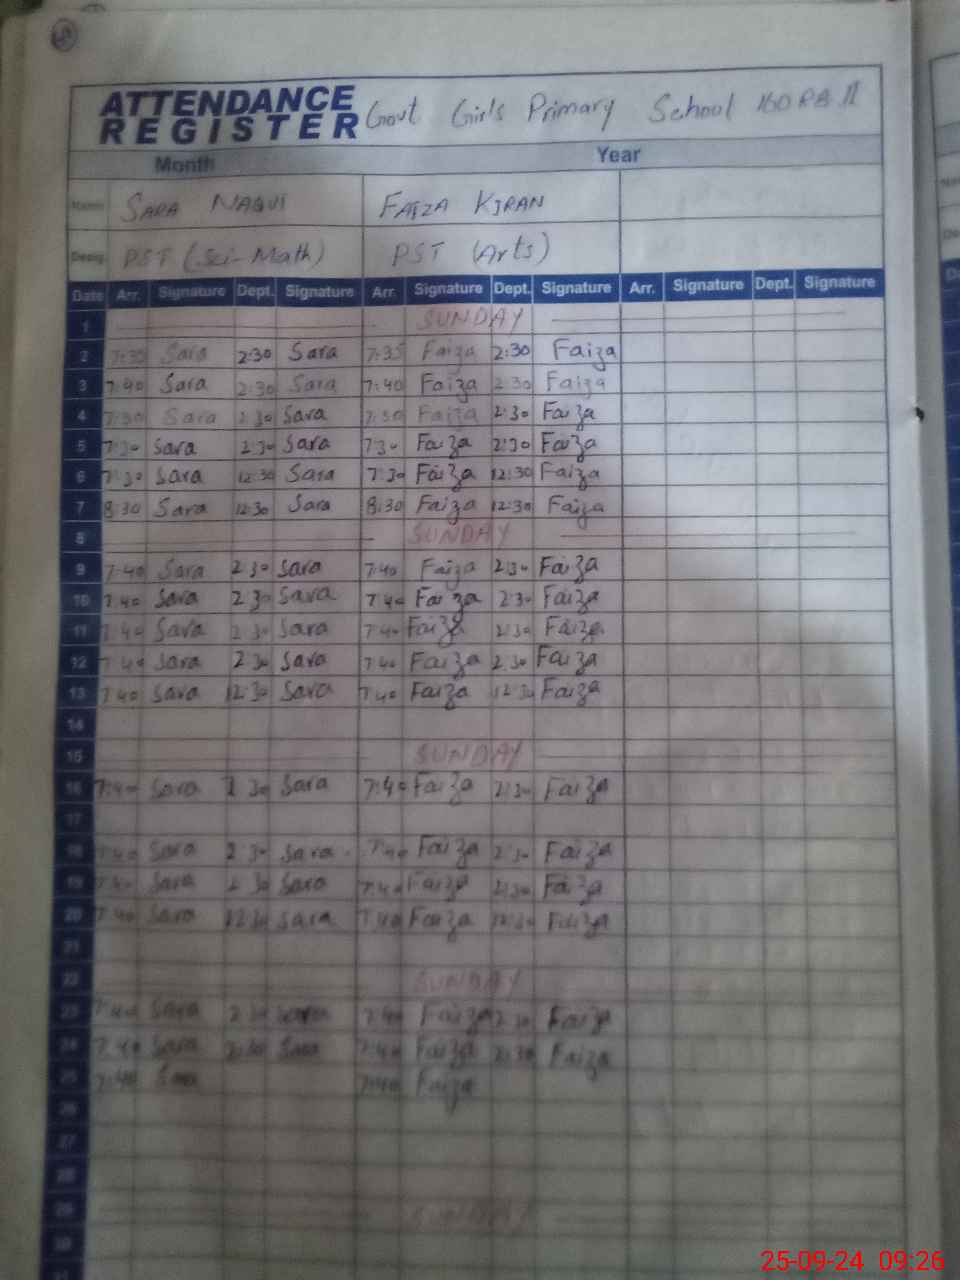 ATTENDANCE REGISTER Govt Girls Primary School 160 RB II
Month Year
Name SARA NAQUI FAIZA KIRAN
Desig. PST (Sci-Math) PST (Arts)
Date Arr. Signature Dept. Signature Arr. Signature Dept. Signature Arr. Signature Dept. Signature
1 SUNDAY
2 7:30 Sara 2:30 Sara 7:35 Faiza 2:30 Faiza
3 7:40 Sara 2:30 Sara 7:40 Faiza 2:30 Faiza
4 7:30 Sara 2:30 Sara 7:30 Faiza 2:30 Faiza
5 7:30 Sara 2:30 Sara 7:30 Faiza 2:30 Faiza
6 7:30 Sara 12:30 Sara 7:30 Faiza 12:30 Faiza
7 8:30 Sara 12:30 Sara 8:30 Faiza 12:30 Faiza
8 SUNDAY
9 7:40 Sara 2:30 Sara 7:40 Faiza 2:30 Faiza
10 7:40 Sara 2:30 Sara 7:40 Faiza 2:30 Faiza
11 7:40 Sara 2:30 Sara 7:40 Faiza 2:30 Faiza
12 7:40 Sara 2:30 Sara 7:40 Faiza 2:30 Faiza
13 7:40 Sara 12:30 Sara 7:40 Faiza 12:30 Faiza
14
15 SUNDAY
16 7:40 Sara 2:30 Sara 7:40 Faiza 2:30 Faiza
17
18 7:40 Sara 2:30 Sara 7:40 Faiza 2:30 Faiza
19 7:40 Sara 2:30 Sara 7:40 Faiza 2:30 Faiza
20 7:40 Sara 12:30 Sara 7:40 Faiza 12:30 Faiza
21
22 SUNDAY
23 7:40 Sara 2:30 Sara 7:40 Faiza 2:30 Faiza
24 7:40 Sara 2:30 Sara 7:40 Faiza 2:30 Faiza
25 7:40 Sara 7:40 Faiza
26
27
28
29 SUNDAY
30
25-09-24 09:26